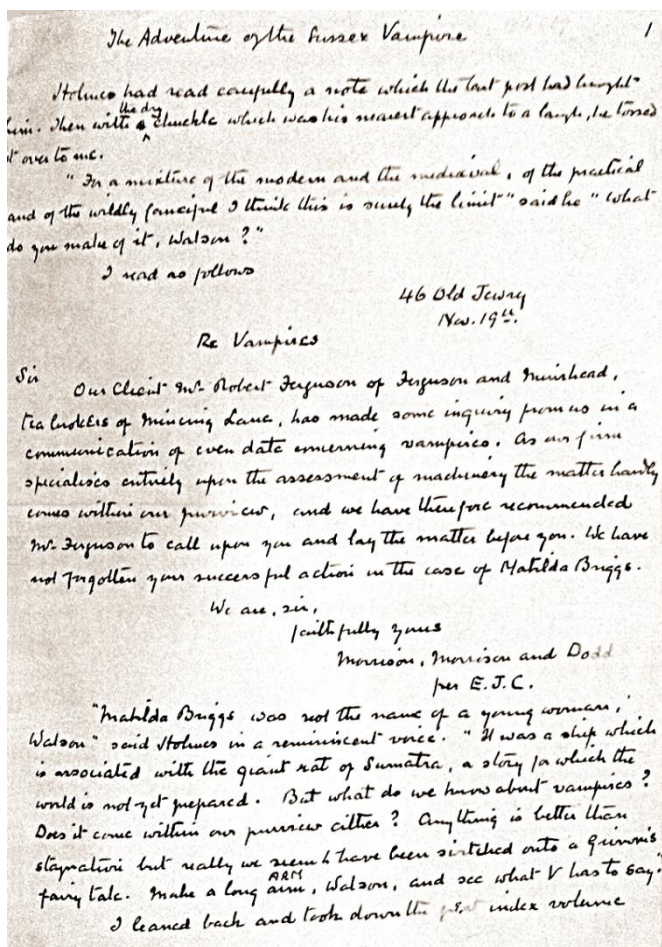 The Adventure of the Sussex Vampire 1
Holmes had read carefully a note which the last post had brought
him. Then with the dry chuckle which was his nearest approach to a laugh, he tossed
it over to me.
"For a mixture of the modern and the mediaeval, of the practical
and of the wildly fanciful I think this is surely the limit" said he "What
do you make of it, Watson?"
I read as follows
46 Old Jewry
Nov. 19th.
Re Vampires
Sir
Our Client Mr. Robert Ferguson of Ferguson and Muirhead,
tea brokers of Mincing Lane, has made some inquiry from us in a
communication of even date concerning vampires. As our firm
specialises entirely upon the assessment of machinery the matter hardly
comes within our purview, and we have therefore recommended
Mr. Ferguson to call upon you and lay the matter before you. We have
not forgotten your successful action in the case of Matilda Briggs.
We are, sir,
faithfully yours
Morrison, Morrison and Dodd
per E.J.C.
"Matilda Briggs was not the name of a young woman,
Watson" said Holmes in a reminiscent voice. "It was a ship which
is associated with the giant rat of Sumatra, a story for which the
world is not yet prepared. But what do we know about vampires?
Does it come within our purview either? Anything is better than
stagnation but really we seem to have been switched onto a Grimms
fairy tale. Make a long arm, ARM Watson, and see what V has to say."
I leaned back and took down the index volume